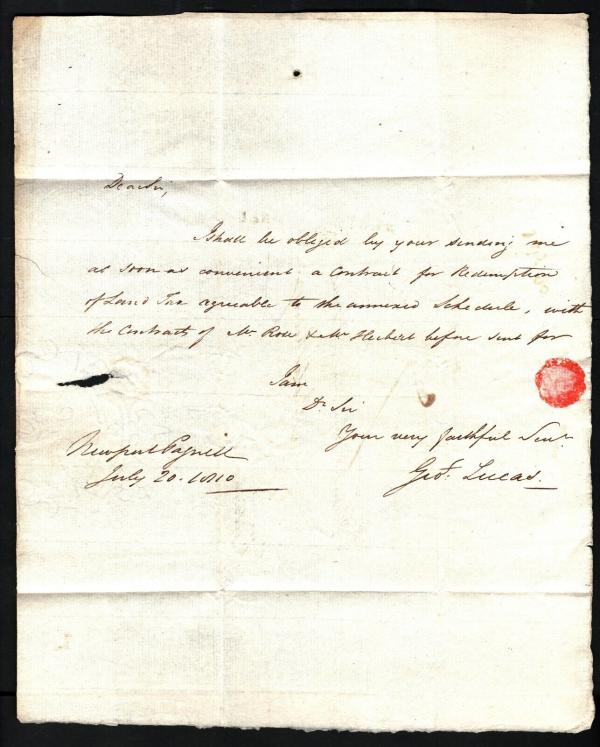 Dear Sir,
I shall be obliged by your sending me
as soon as convenient a Contract for Redemption
of Land Tax agreable to the annexed Schedule, with
the Contracts of Mr Rose & Mr Herbert before sent for
I am
Dr Sir
Your very faithful Servt
Newport Pagnell
Geo. Lucas.
July 20. 1810